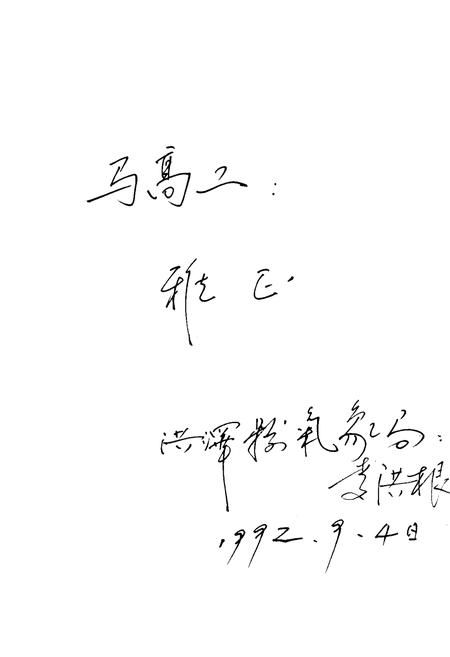 马高工：
雅正
洪泽县氣象局：
李洪根
1992.9.4日